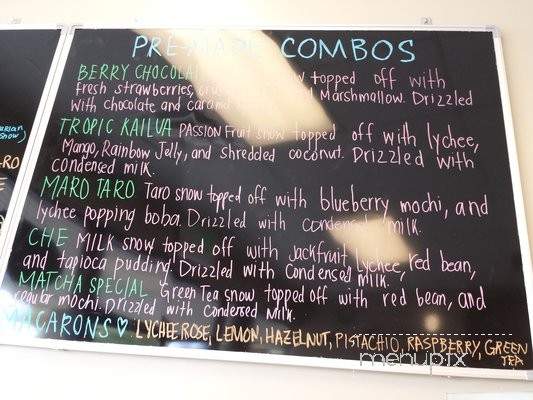 PRE-MADE COMBOS
BERRY CHOCOLAT topped off with
fresh strawberries, Marshmallow. Drizzled
with chocolate and caram
TROPIC KAILUA PASSION Fruit snow topped off with lychee,
Mango, Rainbow Jelly, and shredded coconut. Drizzled with
condensed milk.
MARO TARO Taro snow topped off with blueberry mochi, and
lychee popping boba. Drizzled with condensed milk.
CHE MILK snow topped off with Jackfruit, lychee, red bean,
and tapioca pudding. Drizzled with Condensed milk.
MATCHA SPECIAL Green Tea snow topped off with red bean, and
regular mochi. Drizzled with condensed Milk.
MACARONS ♡ LYCHEE ROSE, LEMON, HAZELNUT, PISTACHIO, RASPBERRY, GREEN
TEA
menupix